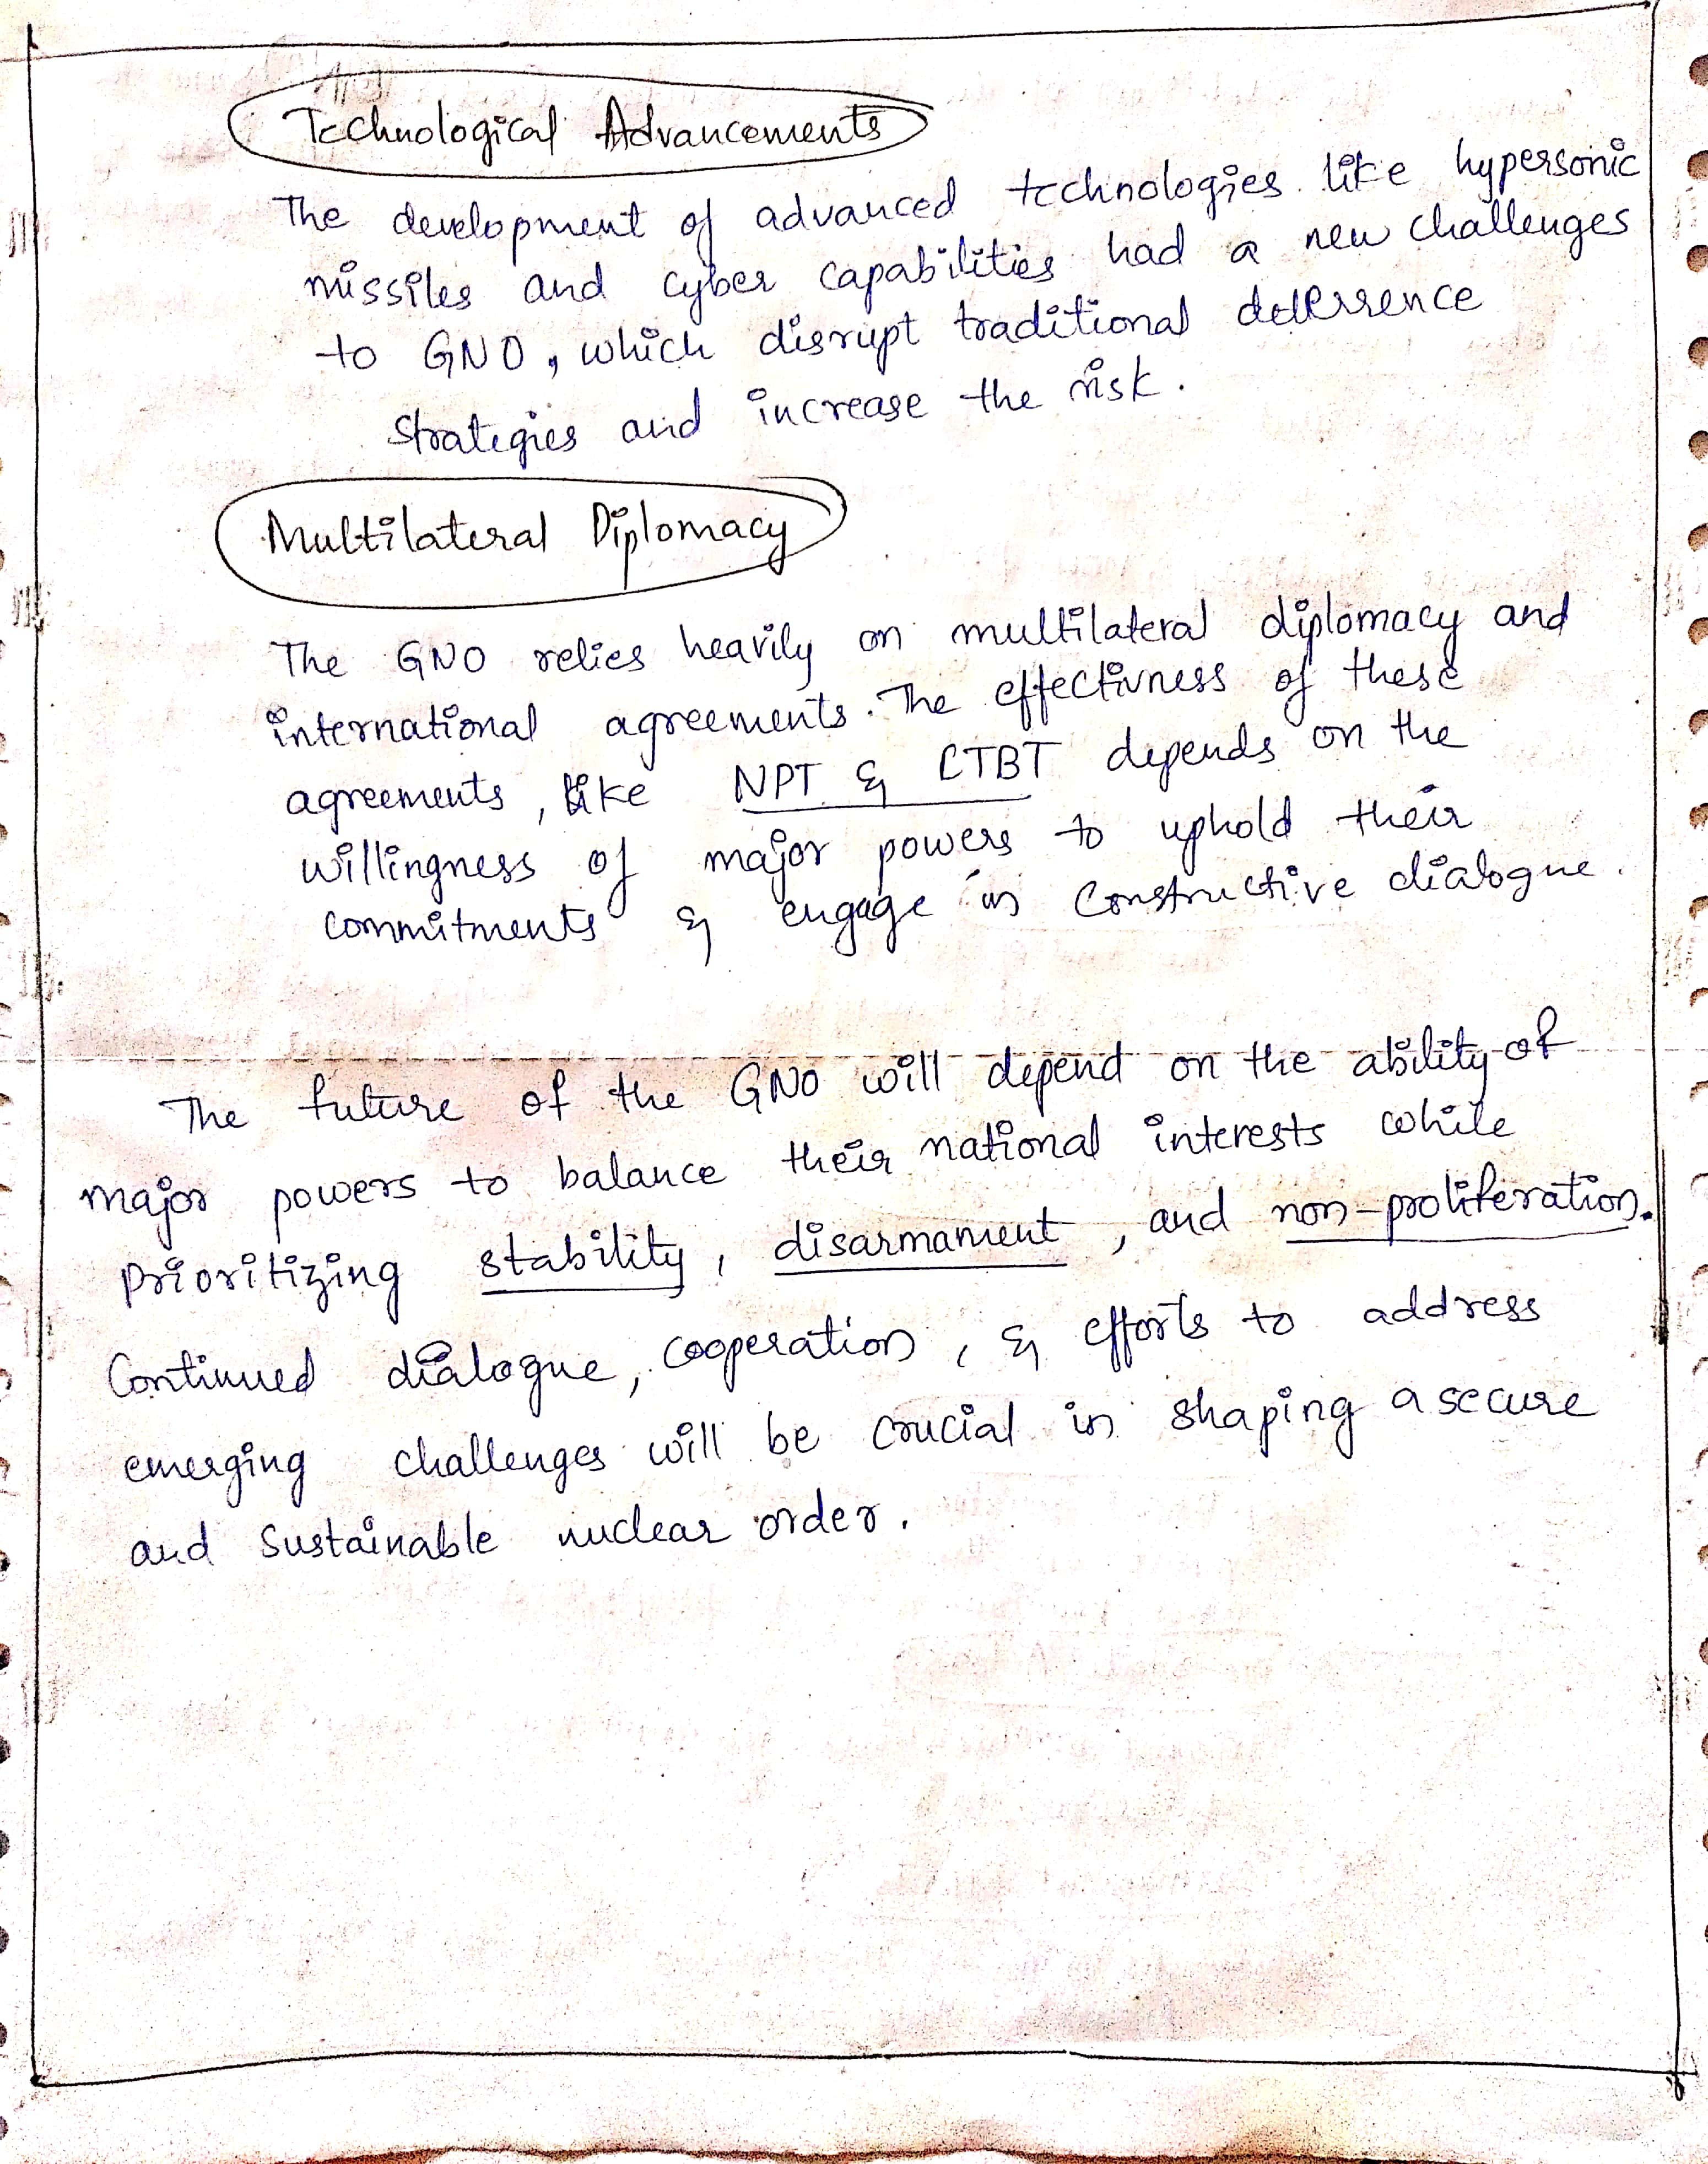 Technological Advancements
The development of advanced technologies like hypersonic
missiles and cyber capabilities had a new challenges
to GNO, which disrupt traditional deterrence
strategies and increase the risk.
Multilateral Diplomacy
The GNO relies heavily on multilateral diplomacy and
international agreements. The effectivness of these
agreements, like NPT & CTBT depends on the
willingness of major powers to uphold their
commitments & engage in constructive dialogue.
The future of the GNO will depend on the ability of
major powers to balance their national interests while
prioritizing stability, disarmament, and non-proliferation.
Continued dialogue, cooperation, & efforts to address
emerging challenges will be crucial in shaping a secure
and sustainable nuclear order.